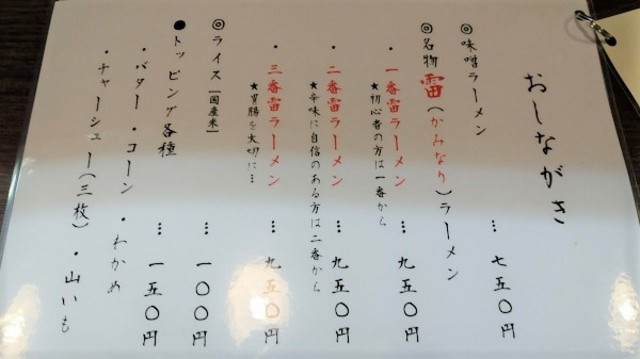 おしながき
◎味噌ラーメン … 七五〇円
◎名物 雷(かみなり)ラーメン
・一番雷ラーメン … 九五〇円
★初心者の方は一番から
・二番雷ラーメン … 九五〇円
★辛味に自信のある方は二番から
・三番雷ラーメン … 九五〇円
★胃腸を大切に…
◎ライス[国産米] … 一〇〇円
●トッピング各種 … 一五〇円
・バター・コーン・わかめ
・チャーシュー(三枚)・山いも